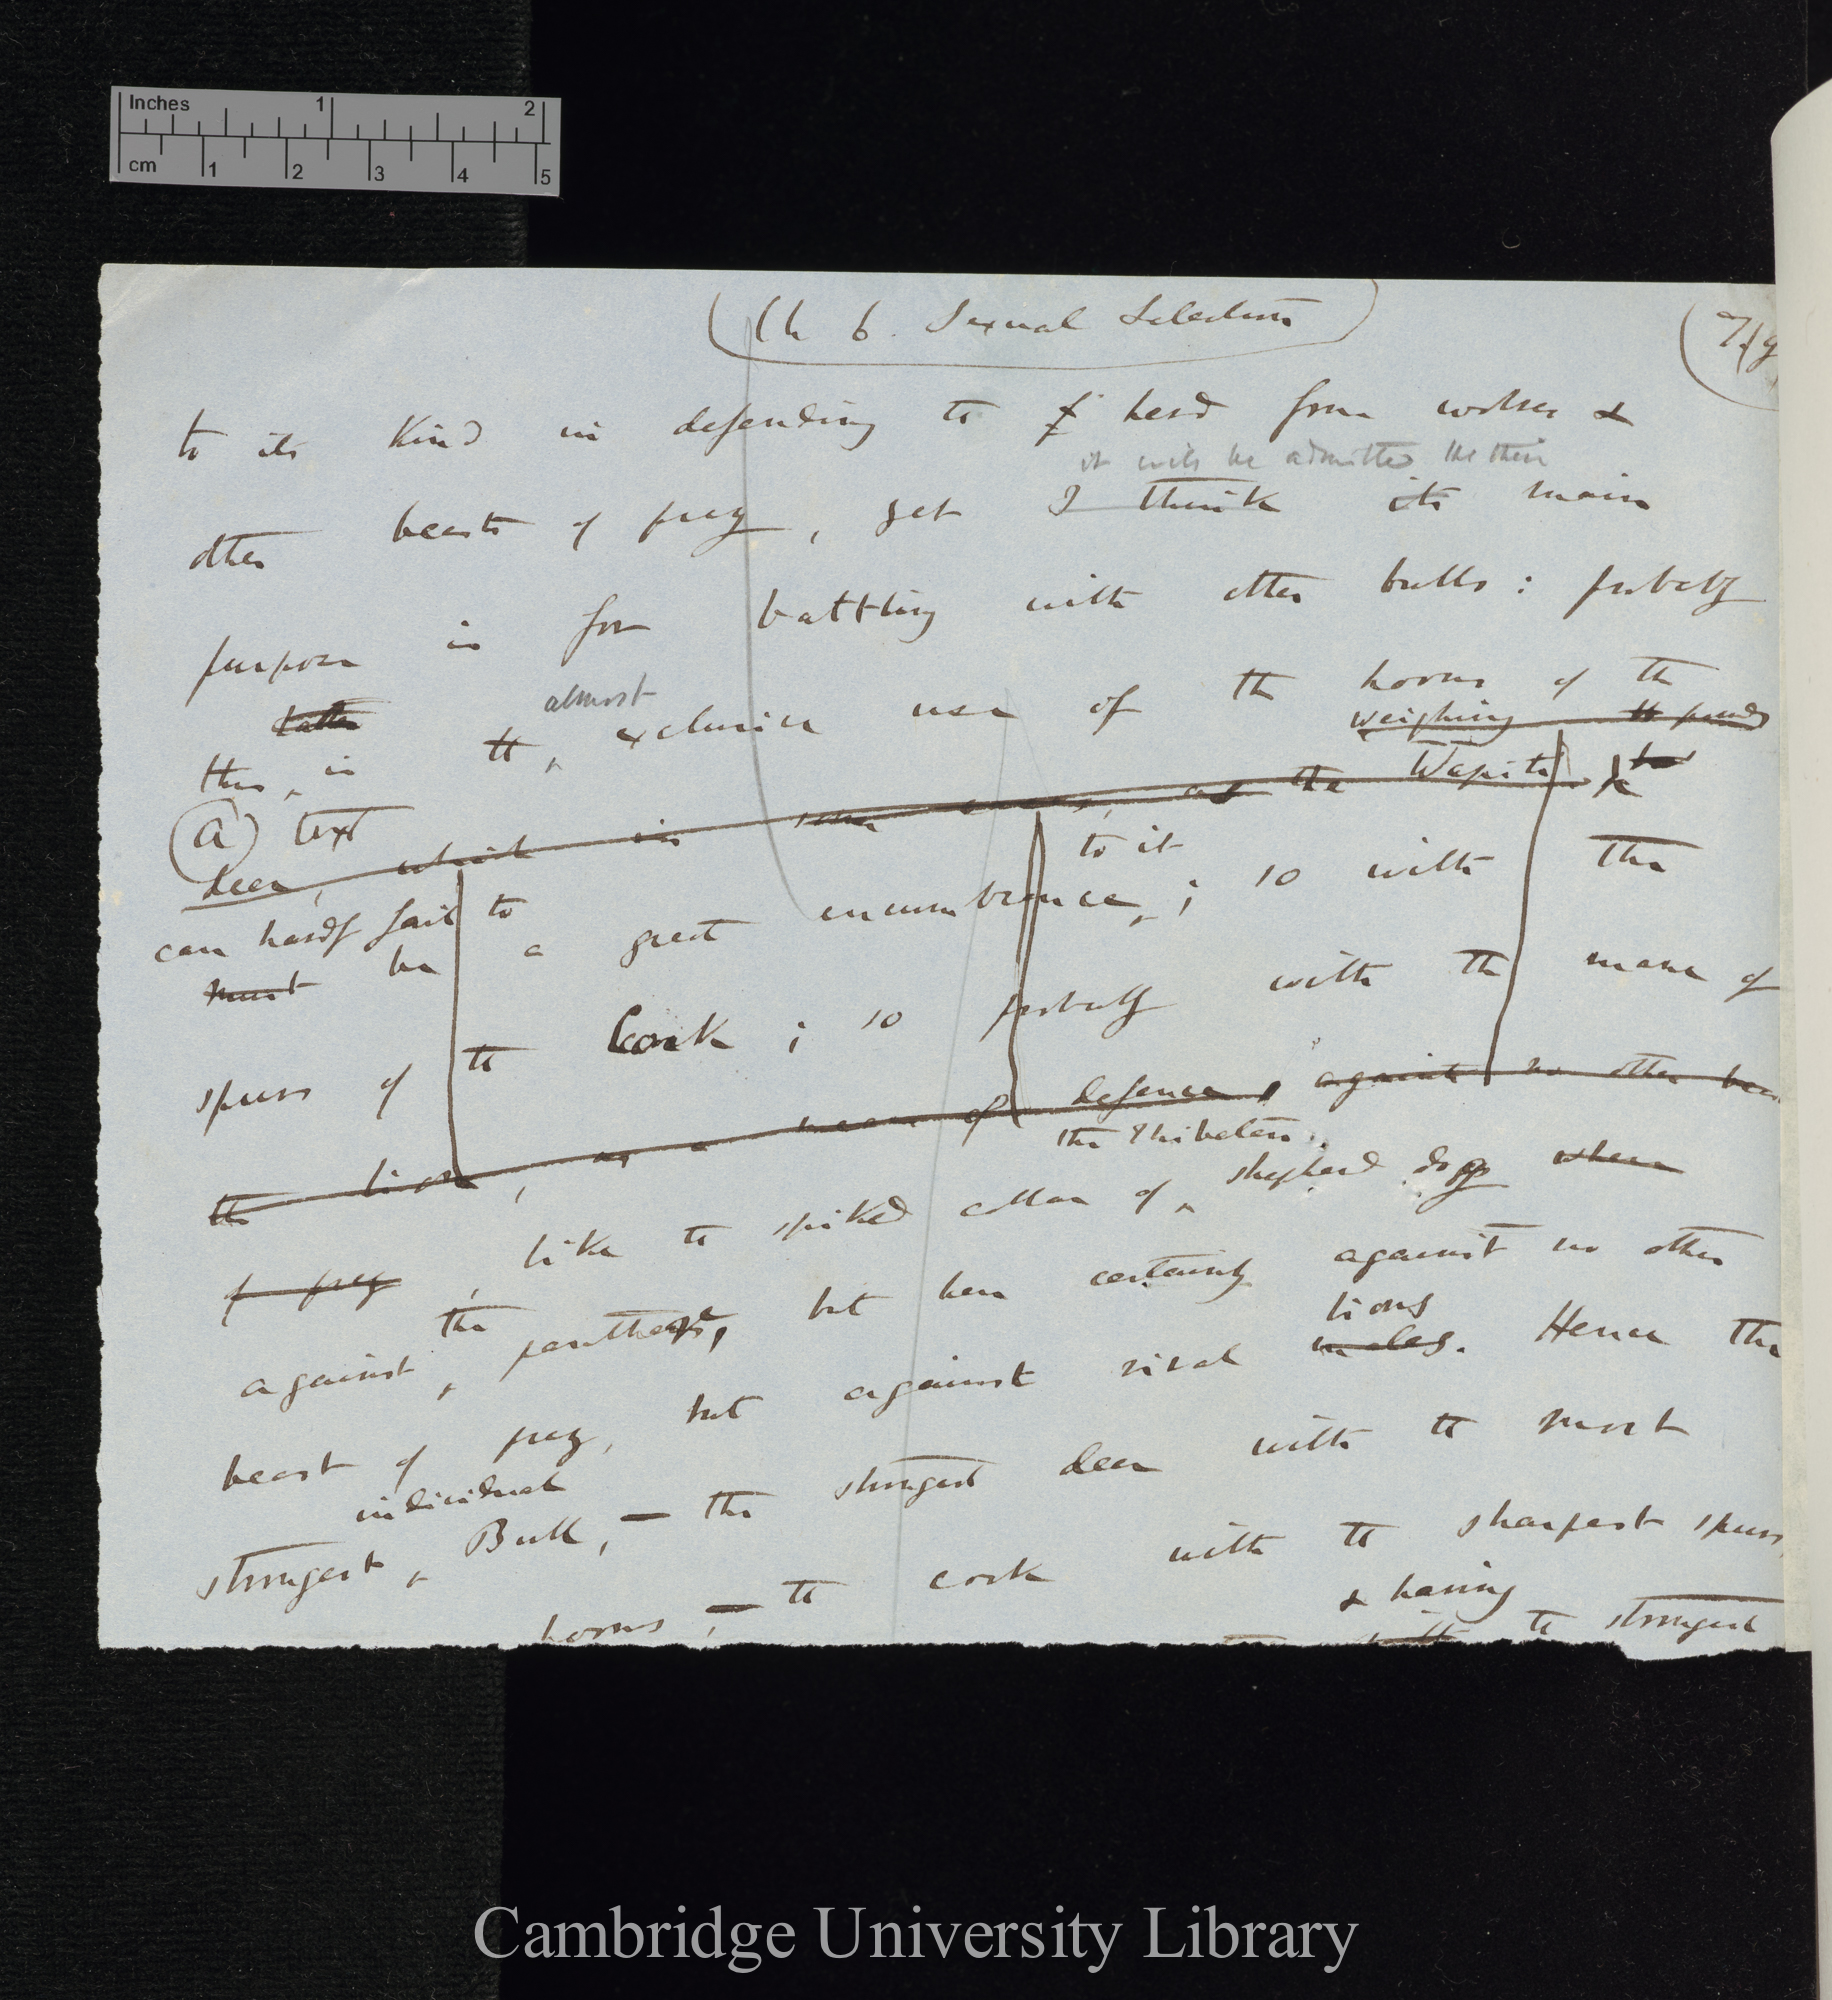 Inches 1 2
cm 1 2 3 4 5
Ch 6. Sexual Selection
to its kind in defending the herd from wolves &
it will be admitted that their
other beasts of prey, yet I think its main
purpose is for battling with other bulls: probably
latter almost
this, is the exclusive use of the horns of the
weighing
(a) text
deer, which in some cases, as the Wapiti
can hardly fail to to it
must be a great encumbrance; so with the
spurs of the Cock; so probably with the mane of
the lion, as a means of defence, against no other
the Thibetan
of prey, like the spiked collar of shepherd dogs when
against the panther, but here certainly against no other
lions
beast of prey, but against rival males. Hence the
individual
strongest Bull, — the strongest deer with the
horns; — the cock with the sharpest spurs
& having
with the strongest
Cambridge University Library